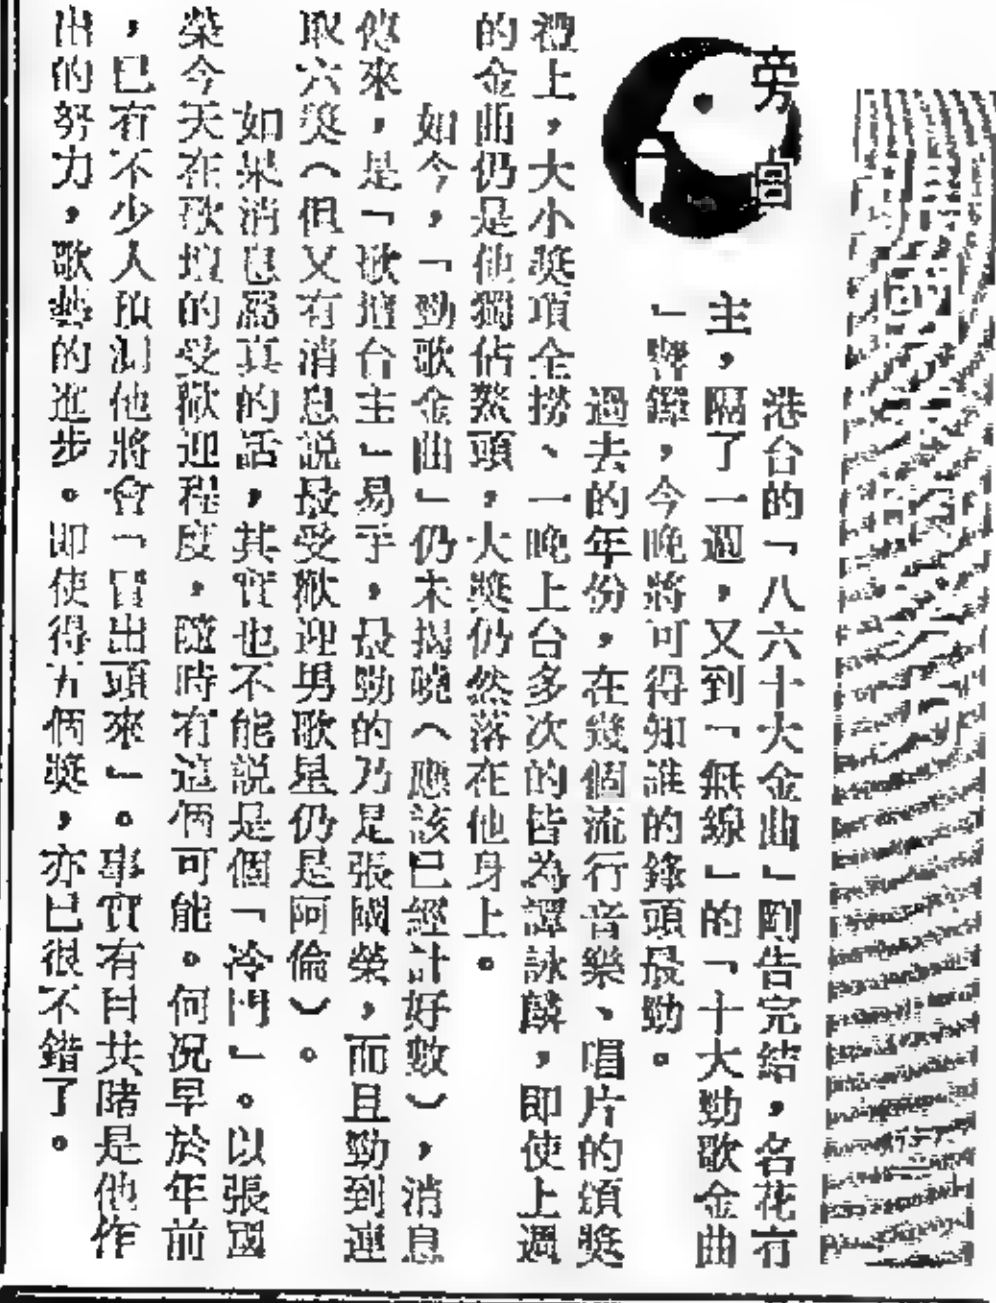 旁白
港台的「八六十大金曲」剛告完結，名花有
主，隔了一週，又到「無線」的「十大勁歌金曲
」響鑼，今晚將可得知誰的鋒頭最勁。
過去的年份，在幾個流行音樂、唱片的頒獎
禮上，大小獎項全撈、一晚上台多次的皆為譚詠麟，即使上週
的金曲仍是他獨佔鰲頭，大獎仍然落在他身上。
如今，「勁歌金曲」仍未揭曉（應該已經計好數），消息
傳來，是「歌壇台主」易手，最勁的乃是張國榮，而且勁到連
取六獎（但又有消息説最受歡迎男歌星仍是阿倫）。
如果消息爲真的話，其實也不能説是個「冷門」。以張國
榮今天在歌壇的受歡迎程度，隨時有這個可能。何况早於年前
，已有不少人預測他將會「冒出頭來」。事實有目共睹是他作
出的努力，歌藝的進步。即使得五個獎，亦已很不錯了。